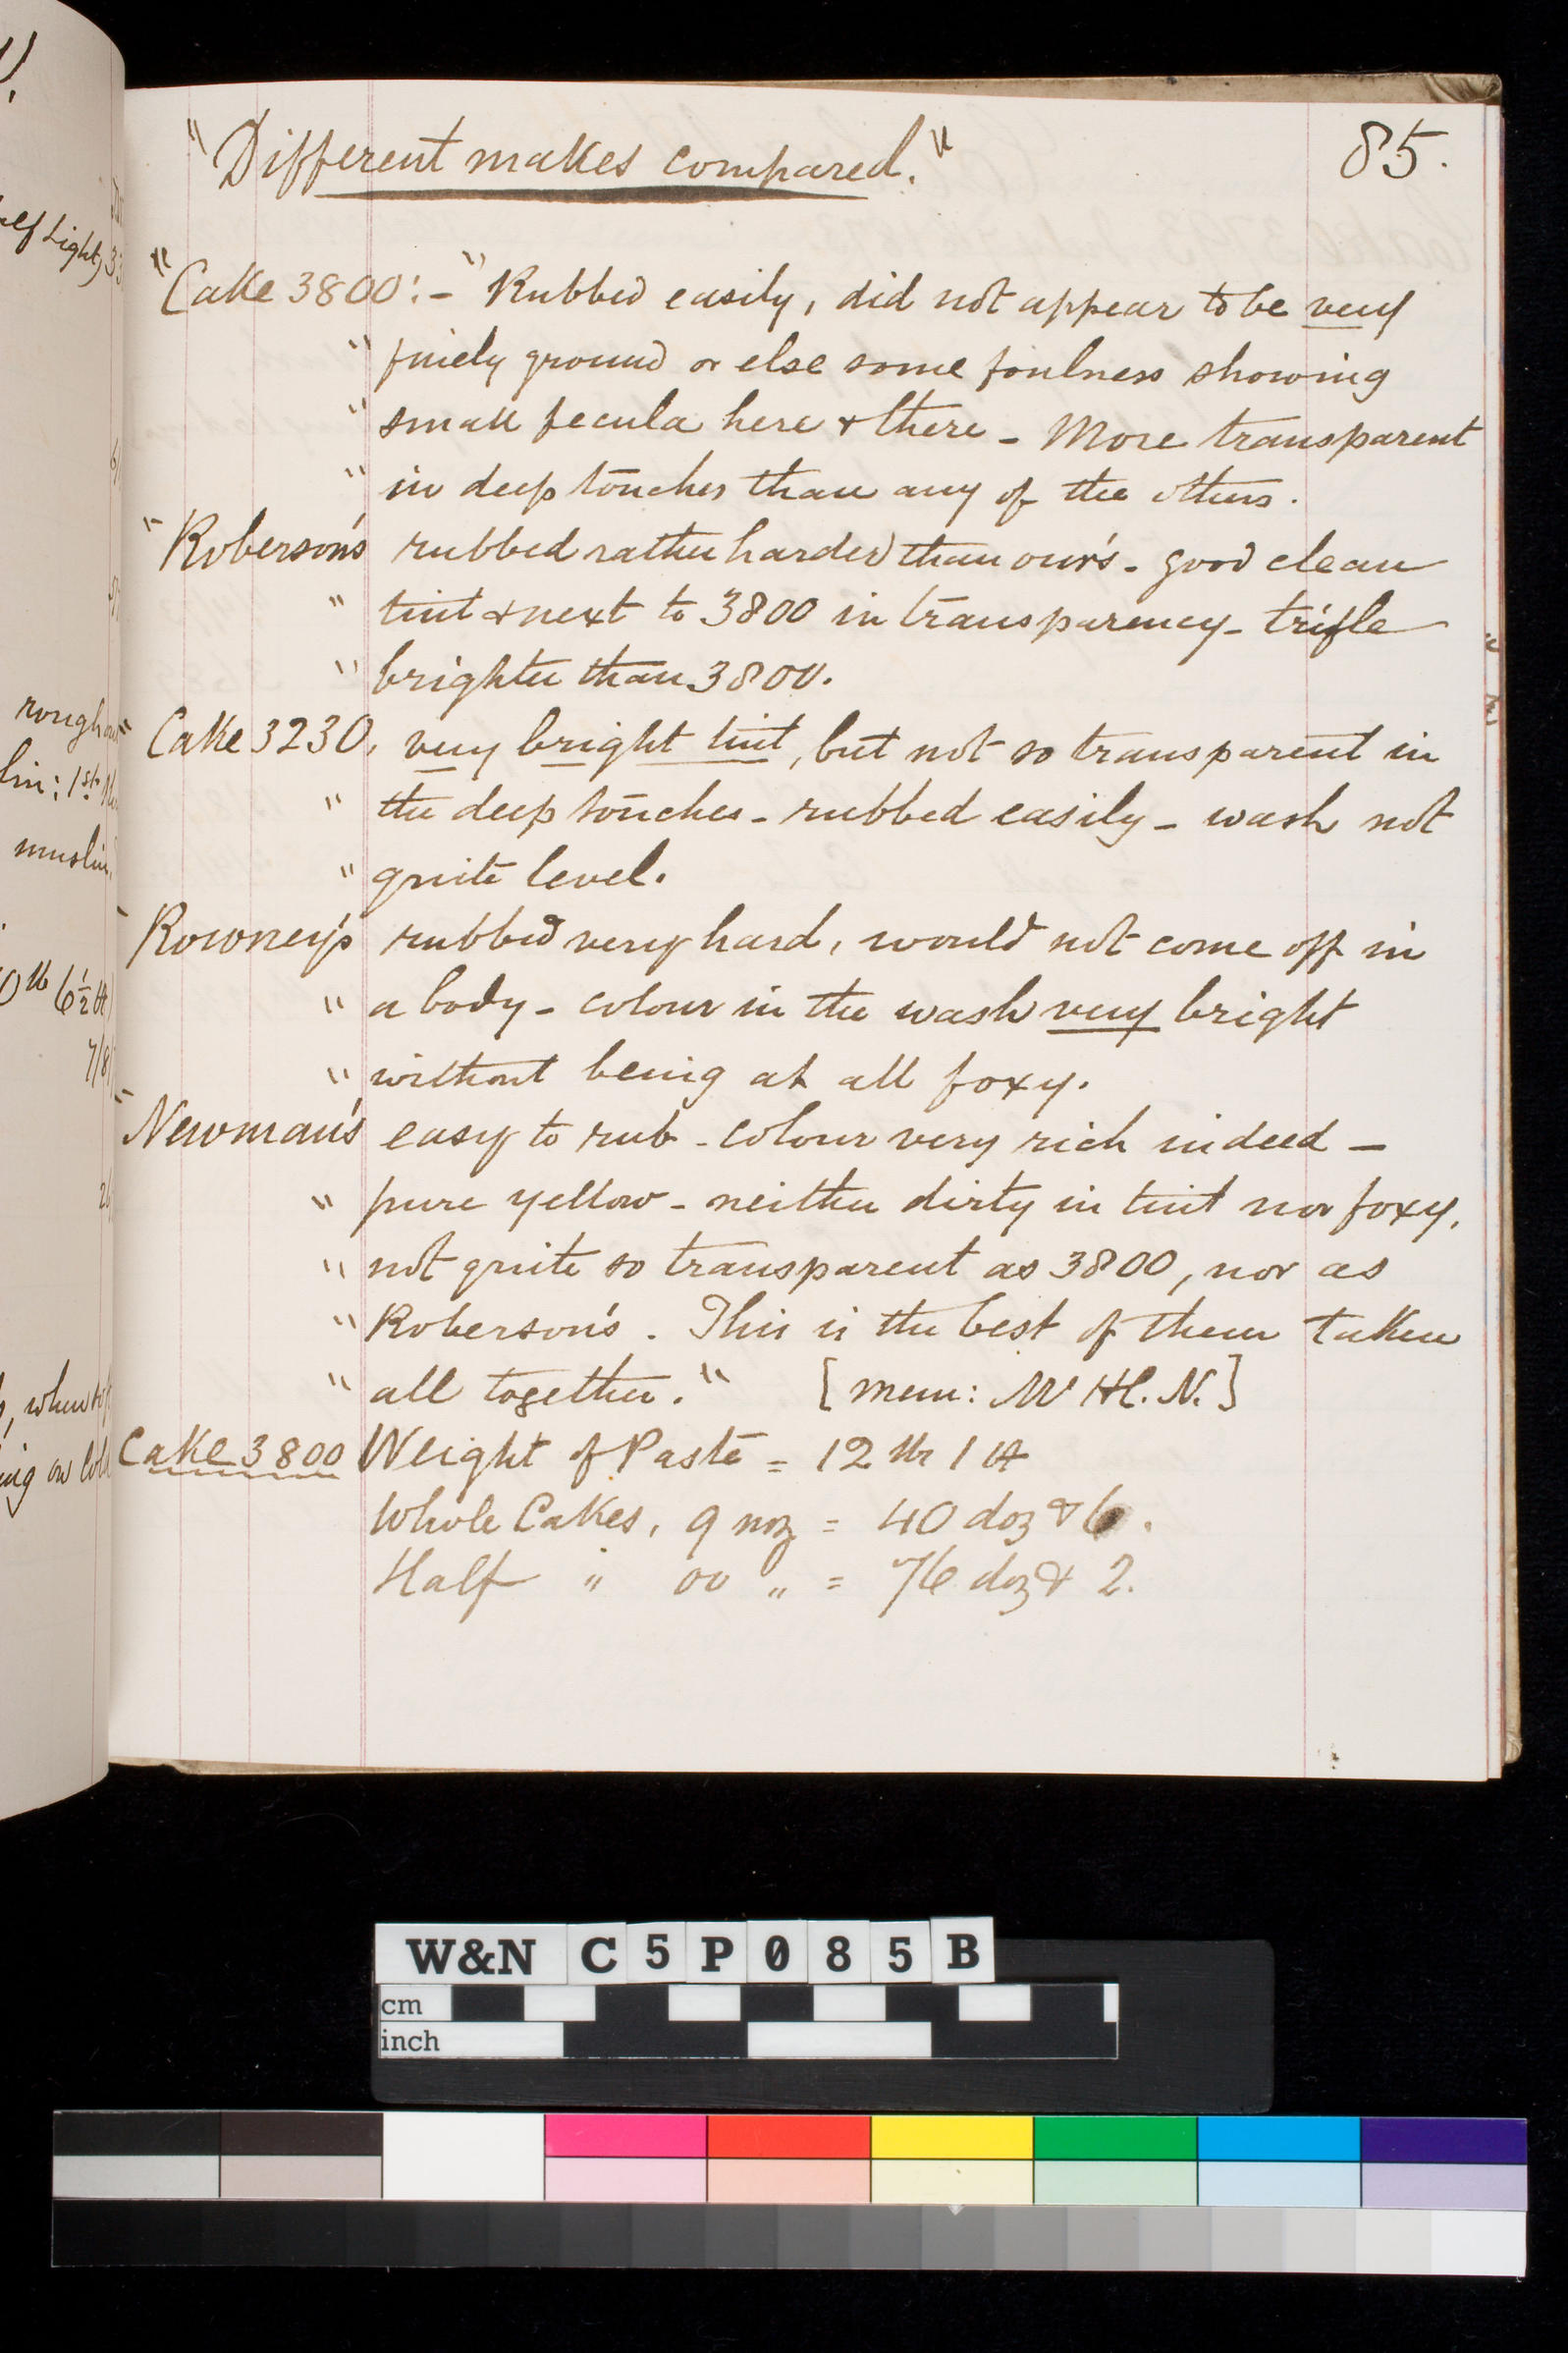 "Different makes compared." 85.
"Cake 3800:- "Rubbed easily, did not appear to be very
" finely ground or else some foulness showing
" small fecula here & there - More transparent
" in deep touches than any of the others.
" Roberson's rubbed rather harder than our's - good clean
" tint & next to 3800 in transparency - trifle
" brighter than 3800.
" Cake 3230, very bright tint, but not so transparent in
" the deep touches - rubbed easily - wash not
" quite level.
" Rowney's rubbed very hard, would not come off in
" a body - colour in the wash very bright
" without being at all foxy.
" Newman's easy to rub - colour very rich indeed -
" pure yellow - neither dirty in tint nor foxy,
" not quite so transparent as 3800, nor as
" Roberson's. This is the best of them taken
" all together." [mem: W H. N.]
Cake 3800 Weight of Paste = 12 lb 1
Whole Cakes, 9 = 40 doz & 6.
Half " 00 " = 76 doz & 2.
rough
muslin
W&N C5P085B
cm
inch